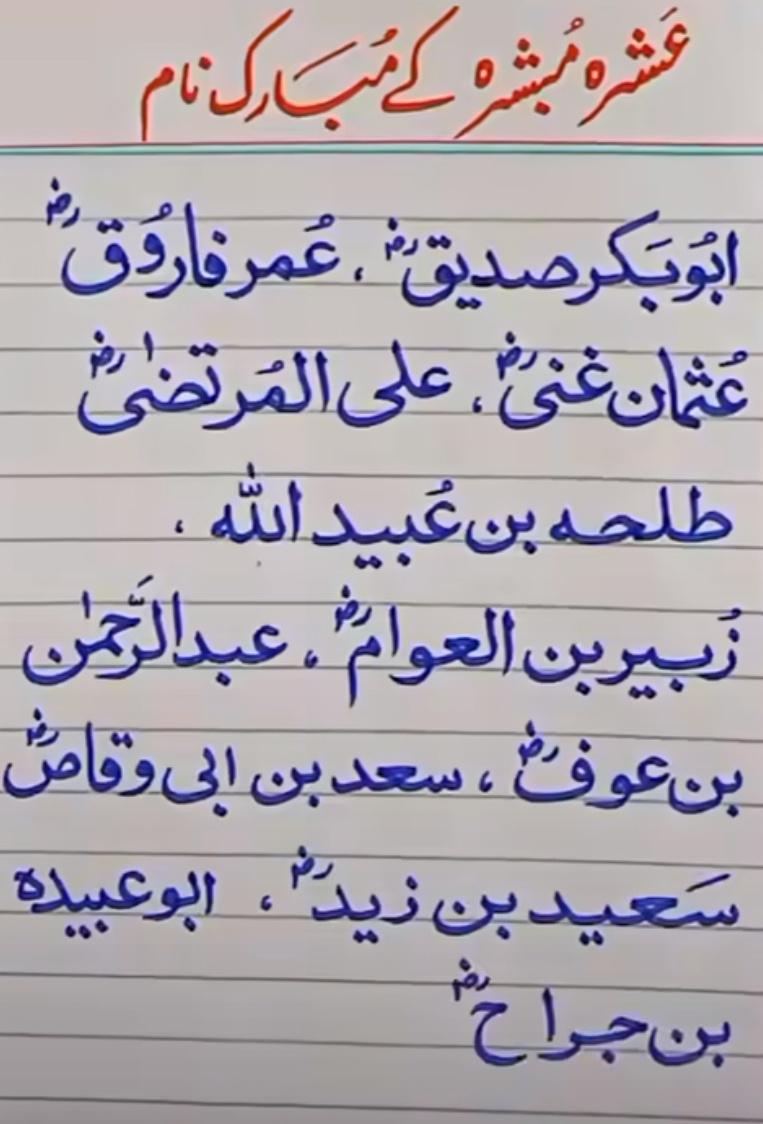 عَشرہ مُبشرہ کے مُبَارک نام
ابُوبَکر صدیقؓ ، عُمر فارُوقؓ
عُثمان غنیؓ ، علی المُرتضٰیؓ
طلحہ بن عُبید اللّٰہ ،
زُبیر بن العوامؓ ، عبدالرَّحمٰن
بن عوفؓ ، سعد بن ابی وقاصؓ
سَعید بن زیدؓ ، ابو عبیدہ
بن جراحؓ